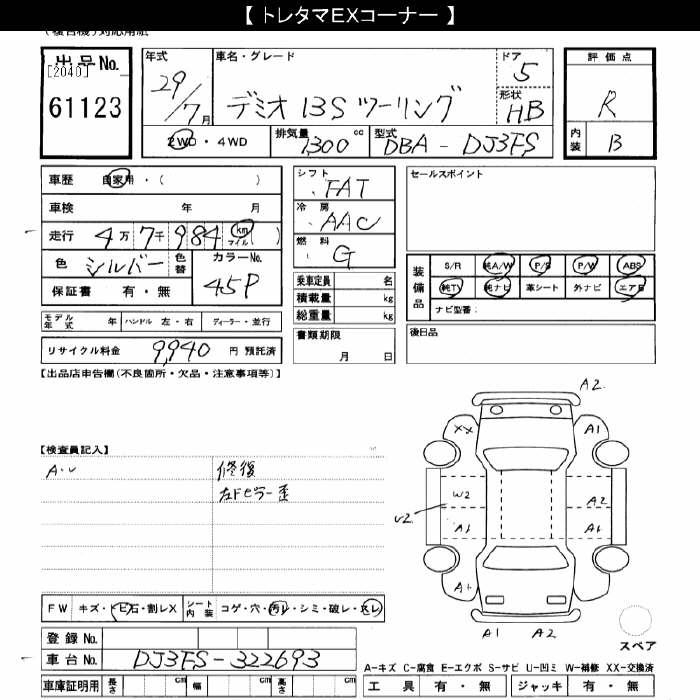 【 トレタマEXコーナー 】
(複合機)対応用紙
出品No.
[2040]
61123
年式
29/7月
車名・グレード
デミオ 13S ツーリング
ドア
5
形状
HB
2WD・4WD
排気量
1300 cc
型式
DBA - DJ3FS
評価点
R
内装
B
車歴 自家用・( )
車検 年 月
走行 4万7千984 km マイル ( )
色 シルバー 色替
カラーNo.
45P
保証書 有・無
モデル年式 年 ハンドル 左・右 ディーラー・並行
リサイクル料金 9,940 円 預託済
シフト
FAT
冷房
AAC
燃料
G
乗車定員 名
積載量 kg
総重量 kg
書類期限
月 日
セールスポイント
装備品
S/R 純A/W P/S P/W ABS
純TV 純ナビ 革シート 外ナビ エアB
ナビ型番:
後日品
【出品店申告欄(不良箇所・欠品・注意事項等)】
【検査員記入】
A・U
修復
左Fピラー歪
A2
XX
A1
W2
A2
U2
A1
A1
A1
A1 A2
スペア
FW キズ・トビ石・割レX シート内装 コゲ・穴・汚レ・シミ・破レ・スレ
登録No.
車台No. DJ3FS-322693
車庫証明用 長さ cm 幅 cm 高さ cm
A-キズ C-腐食 E-エクボ S-サビ U-凹ミ W-補修 XX-交換済
工具 有・無 ジャッキ 有・無